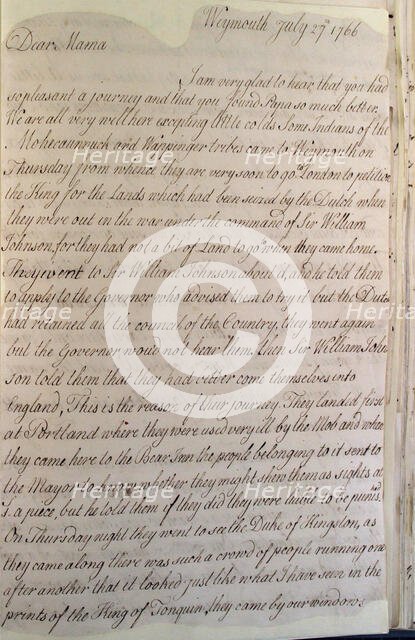 Weymouth July 27th 1766
Dear Mama
I am very glad to hear, that you had
so pleasant a journey and that you found Papa so much better.
We are all very well here excepting little colds. Some Indians of the
and Wappinger tribes came to Weymouth on
Thursday from whence they are very soon to go to London to petition
the King for the Lands which had been seized by the Dutch when
they were out in the war under the command of Sir William
Johnson, for they had not a bit of Land to go to when they came home.
They went to Sir William Johnson about it, and he told them
to apply to the Governor who advised them to try it but the Dutch
had retained all the council of the Country, they went again
but the Governor would not hear them, then Sir William John
son told them that they had better come themselves into
England, This is the reason of their journey. They landed first
at Portland where they were used very ill by the Mob and when
they came here to the Bear Inn the people belonging to it sent to
the Mayor to know whether they might shew them as sights at
a piece, but he told them if they did they were to be punis'd.
On Thursday night they went to see the Duke of Kingston, as
they came along there was such a crowd of people running one
after another that it looked just like what I have seen in the
prints of the King of Tonquin, they came by our windows
Heritage
Heritage
Heritage
Heritage
Heritage
Heritage
©